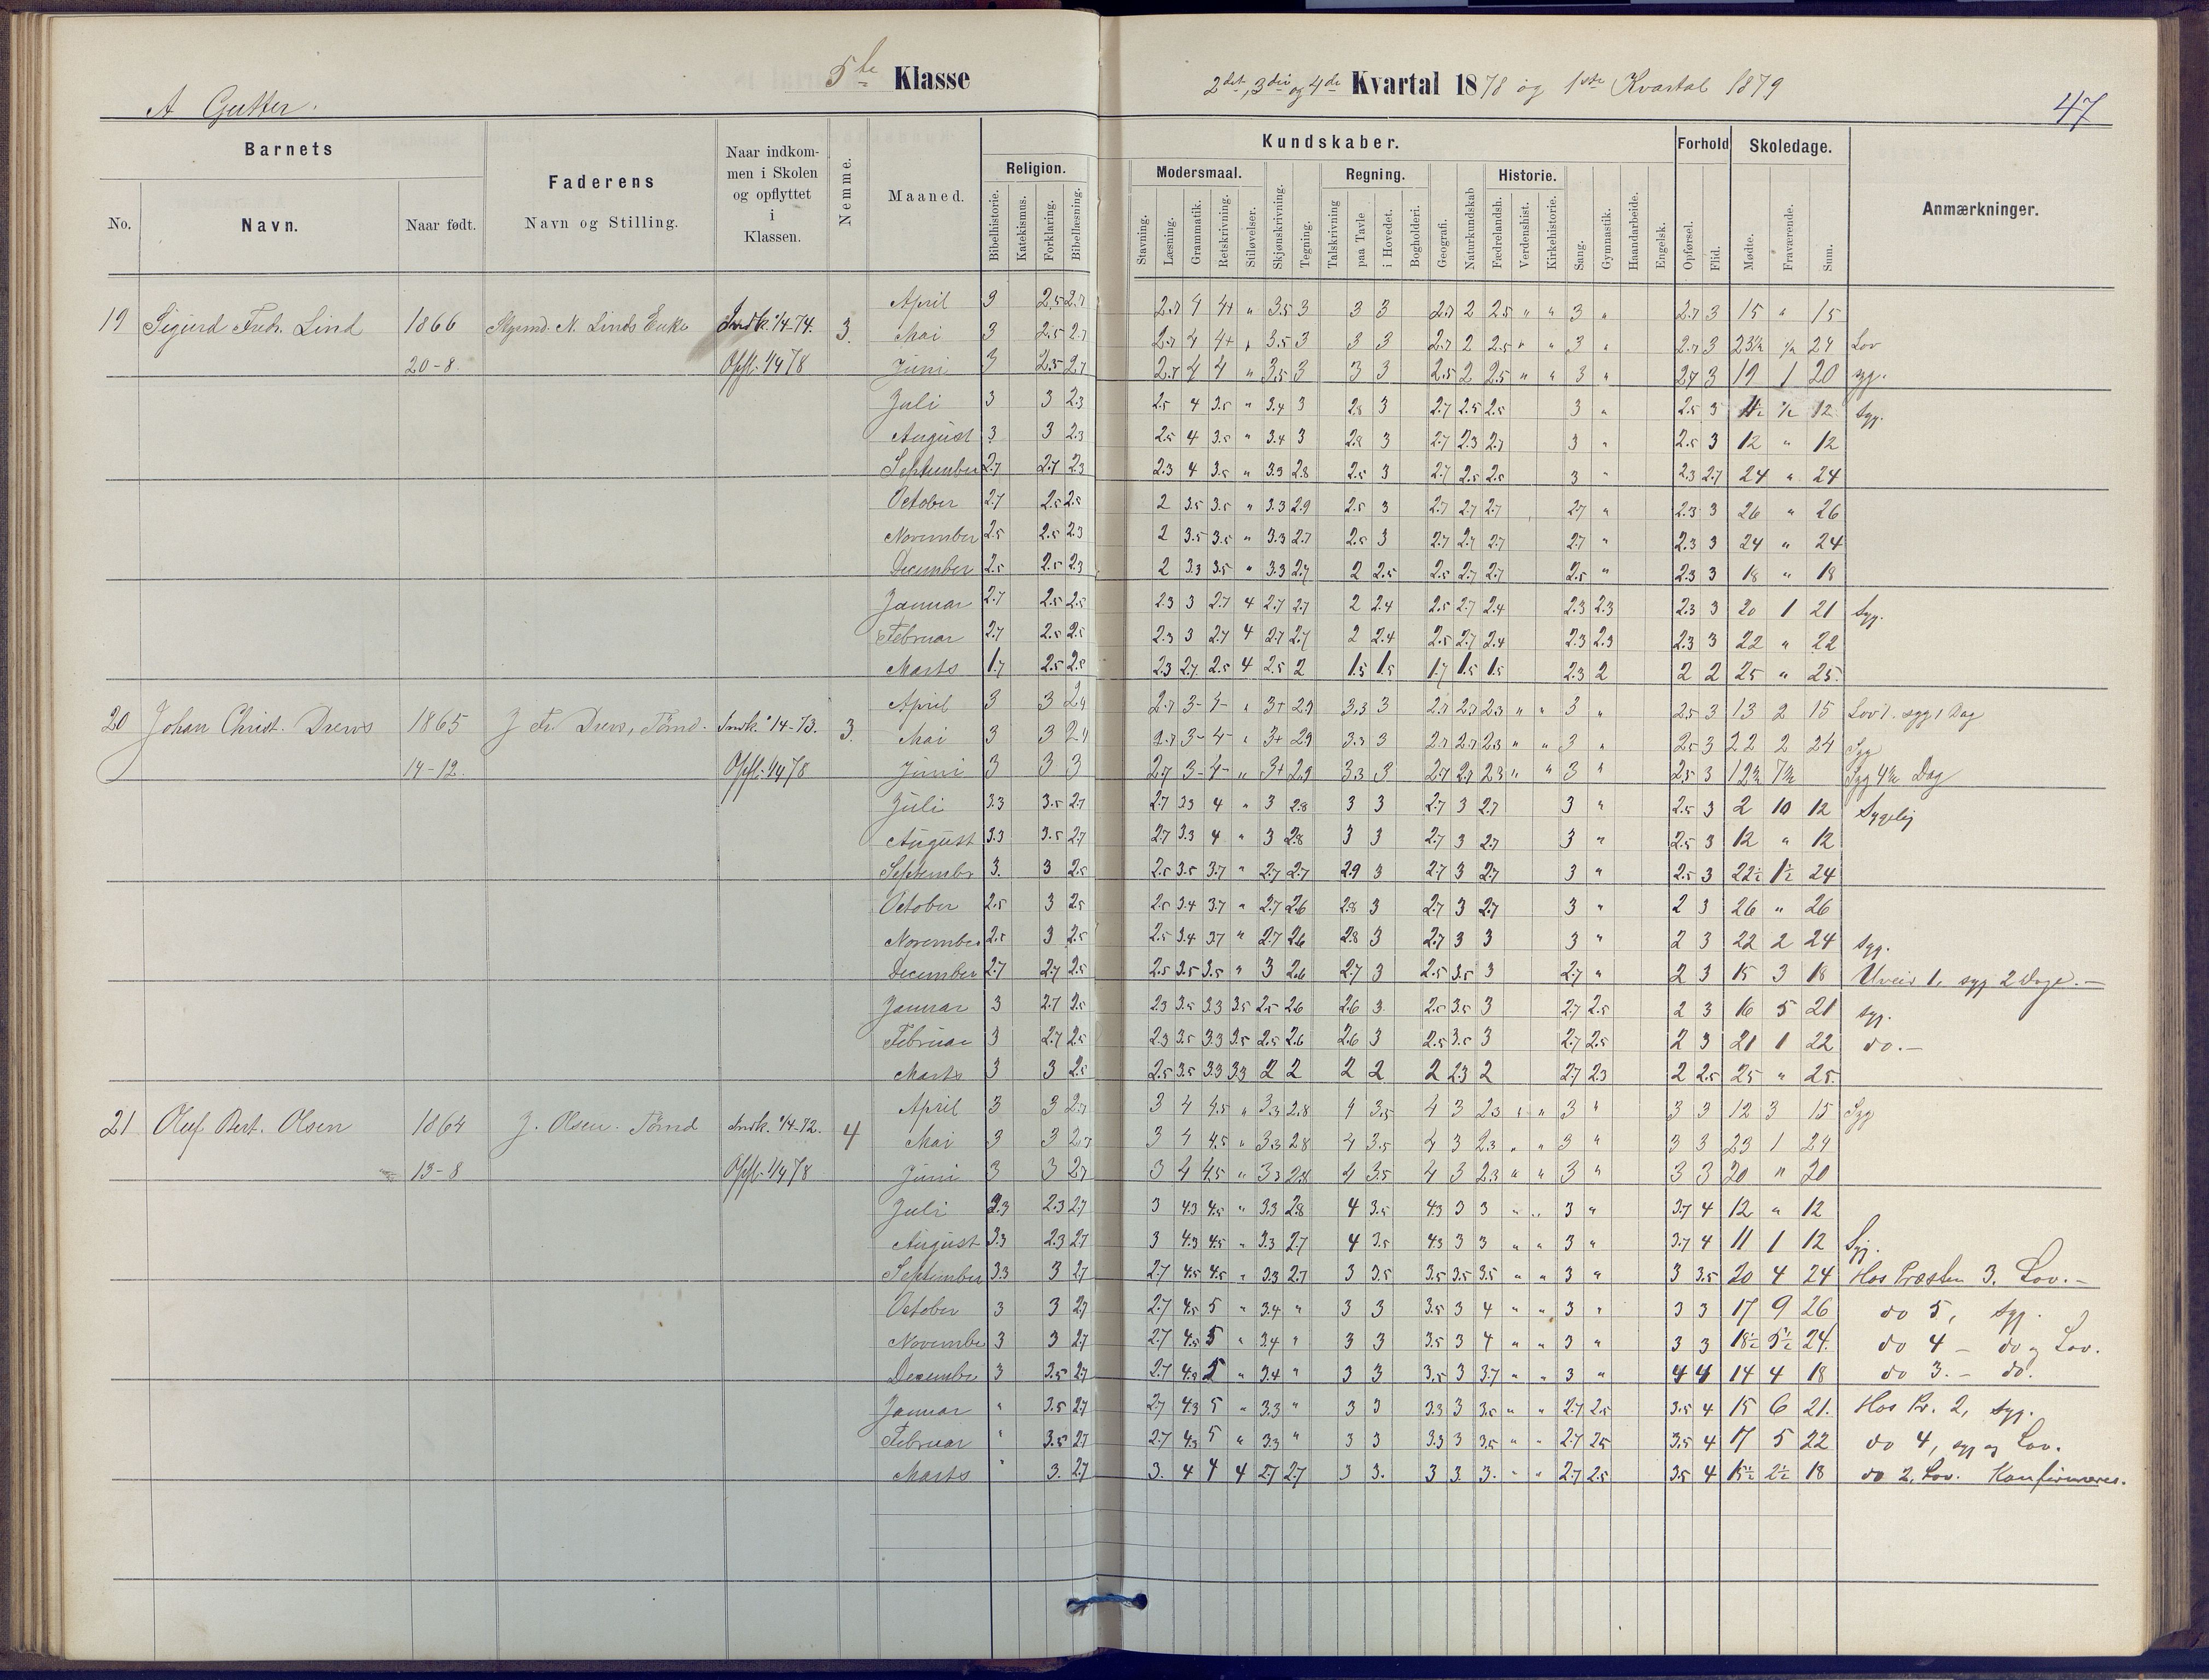 5te Klasse
2det, 3die og 4de Kvartal 1878 og 1ste Kvartal 1879
A Gutter.
47
Barnets
No.
Navn.
Naar født.
Faderens
Navn og Stilling.
Naar indkom-
men i Skolen
og opflyttet
i
Klassen.
Nemme.
Maaned.
Kundskaber.
Religion.
Bibelhistorie.
Katekismus.
Forklaring.
Bibellæsning.
Modersmaal.
Stavning.
Læsning.
Grammatik.
Retskrivning.
Stiløvelser.
Skjønskrivning.
Tegning.
Regning.
Talskrivning
paa Tavle
i Hovedet.
Bogholderi.
Geografi.
Naturkundskab
Historie.
Fædrelandsh.
Verdenshist.
Kirkehistorie.
Sang.
Gymnastik.
Haandarbeide.
Engelsk.
Forhold
Opførsel.
Flid.
Skoledage.
Mødte.
Fraværende.
Sum.
Anmærkninger.
19 Sigurd Fredr. Lind 1866 N. Linds Enke Indk. 1/4-74. 3.
20-8. Opfl. 1/4 78
April 3 2.5 2.7 2.7 4 4+ " 3.5 3 3 3 2.7 2 2.5 " " 3 " 2.7 3 15 " 15
Mai 3 2.5 2.7 2.7 4 4+ " 3.5 3 3 3 2.7 2 2.5 " " 3 " 2.7 3 23½ ½ 24 Lov
Juni 3 2.5 2.7 2.7 4 4 " 3.5 3 3 3 2.5 2 2.5 " " 3 " 2.7 3 19 1 20 syg.
Juli 3 3 2.3 2.5 4 3.5 " 3.4 3 2.8 3 2.7 2.5 2.5 3 " 2.5 3 11½ ½ 12 syg.
August 3 3 2.3 2.5 4 3.5 " 3.4 3 2.8 3 2.7 2.3 2.7 3 " 2.5 3 12 " 12
September 2.7 2.7 2.3 2.3 4 3.5 " 3.3 2.8 2.5 3 2.7 2.5 2.5 3 " 2.3 2.7 24 " 24
October 2.7 2.5 2.5 2 3.5 3.5 " 3.3 2.9 2.5 3 2.7 2.7 2.7 2.7 " 2.3 3 26 " 26
November 2.5 2.5 2.3 2 3.5 3.5 " 3.3 2.7 2.5 3 2.7 2.7 2.7 2.7 " 2.3 3 24 " 24
December 2.5 2.5 2.3 2 3.3 3.5 " 3.3 2.7 2 2.5 2.5 2.7 2.7 2.5 " 2.3 3 18 " 18
Januar 2.7 2.5 2.5 2.3 3 2.7 4 2.7 2.7 2 2.4 2.5 2.7 2.4 2.3 2.3 2.3 3 20 1 21 syg.
Februar 2.7 2.5 2.5 2.3 3 2.7 4 2.7 2.7 2 2.4 2.5 2.7 2.4 2.3 2.3 2.3 3 22 " 22
Marts 1.7 2.5 2.5 2.3 2.7 2.5 4 2.5 2 1.5 1.5 1.7 1.5 1.5 2.3 2 2 2 25 " 25.
20 Johan Christ. Drews 1865 J. Fr. Drews, Tømd. Indk. 1/4-73. 3.
14-12. Opfl. 1/4 78
April 3 3 2.4 2.7 3- 4- " 3+ 2.9 3.3 3 2.7 2.7 2.3 " " 3 " 2.5 3 13 2 15 Lov 1. syg 1 Dag
Mai 3 3 2.4 2.7 3- 4- " 3+ 2.9 3.3 3 2.7 2.7 2.3 " " 3 " 2.5 3 22 2 24 Syg
Juni 3 3 3 2.7 3- 4- " 3+ 2.9 3.3 3 2.7 2.7 2.3 " " 3 " 2.5 3 12½ 7½ Syg 4½ Dag
Juli 3.3 3.5 2.7 2.7 3.3 4 " 3 2.8 3 3 2.7 3 2.7 3 " 2.5 3 2 10 12 Sygelig
August 3.3 3.5 2.7 2.7 3.3 4 " 3 2.8 3 3 2.7 3 2.7 3 " 2.5 3 12 " 12
September 3. 3 2.5 2.5 3.5 3.7 " 2.7 2.7 2.9 3 2.7 3 2.7 3 " 2.5 3 22½ 1½ 24
October 2.5 3 2.5 2.5 3.4 3.7 " 2.7 2.6 2.8 3 2.7 3 2.7 3 " 2 3 26 " 26
November 2.5 3 2.5 2.5 3.4 3.7 " 2.7 2.6 2.8 3 2.7 3 3 3 " 2 3 22 2 24 syg.
December 2.7 2.7 2.5 2.5 3.5 3.5 " 3 2.6 2.7 3 2.5 3.5 3 2.7 " 2 3 15 3 18 Uveir 1, syg 2 Dage.—
Januar 3 2.7 2.5 2.3 3.5 3.3 3.5 2.5 2.6 2.6 3 2.5 3.5 3 2.7 2.5 2 3 16 5 21 syg.
Februar 3 2.7 2.5 2.3 3.5 3.3 3.5 2.5 2.6 2.6 3 2.5 3.5 3 2.7 2.5 2 3 21 1 22 do.—
Marts 3 3 2.5 2.5 3.5 3.3 3.3 2 2 2 2 2 2.3 2 2.7 2.3 2 2.5 25 " 25.
21 Oluf. Bert. Olsen 1864 J. Olsen. Tømd Indk. 1/4-72. 4
13-8 Opfl. 1/4 78
April 3 3 2.7 3 4 4.5 " 3.3 2.8 4 3.5 4 3 2.3 " " 3 " 3 3 12 3 15 Syg
Mai 3 3 2.7 3 4 4.5 " 3.3 2.8 4 3.5 4 3 2.3 " " 3 " 3 3 23 1 24
Juni 3 3 2.7 3 4 4.5 " 3.3 2.8 4 3.5 4 3 2.3 " " 3 " 3 3 20 " 20
Juli 3.3 2.3 2.7 3 4.3 4.5 " 3.3 2.8 4 3.5 4.3 3 3 " " 3 " 3.7 4 12 " 12
August 3.3 2.3 2.7 3 4.3 4.5 " 3.3 2.7 4 3.5 4.3 3 3 " " 3 " 3.7 4 11 1 12 Syg.
September 3.3 3 2.7 2.7 4.5 4.5 " 3.3 2.7 3 3.5 3.5 3.5 3.5 " " 3 " 3 3.5 20 4 24 Hos Præsten 3. Lov.—
October 3 3 2.7 2.7 4.5 5 " 3.4 " 3 3 3.5 3 4 " " 3 " 3 3 17 9 26 do 5, syg.
November 3 3 2.7 2.7 4.5 5 " 3.4 " 3 3 3.5 3 4 " " 3 " 3 3 18½ 5½ 24. do 4 — do og Lov.
December 3 3.5 2.7 2.7 4.3 5 " 3.4 " 3 3 3.5 3 3.7 " " 3 " 4 4 14 4 18 do 3.— do.
Januar " 3.5 2.7 2.7 4.3 5 " 3.3 " 3 3 3.3 3 3.5 " " 2.7 2.5 3.5 4 15 6 21. Hos Pr. 2, syg.
Februar " 3.5 2.7 2.7 4.3 5 " 3.3 " 3 3 3.3 3 3.5 " " 2.7 2.5 3.5 4 17 5 22 do 4, syg og Lov.
Marts " 3. 2.7 3. 4 4 4 2.7 2.7 3 3. 3 3. 3. " " 2.7 2.5 3.5 4 15½ 2½ 18 do 2, Lov. Konfirmeres.